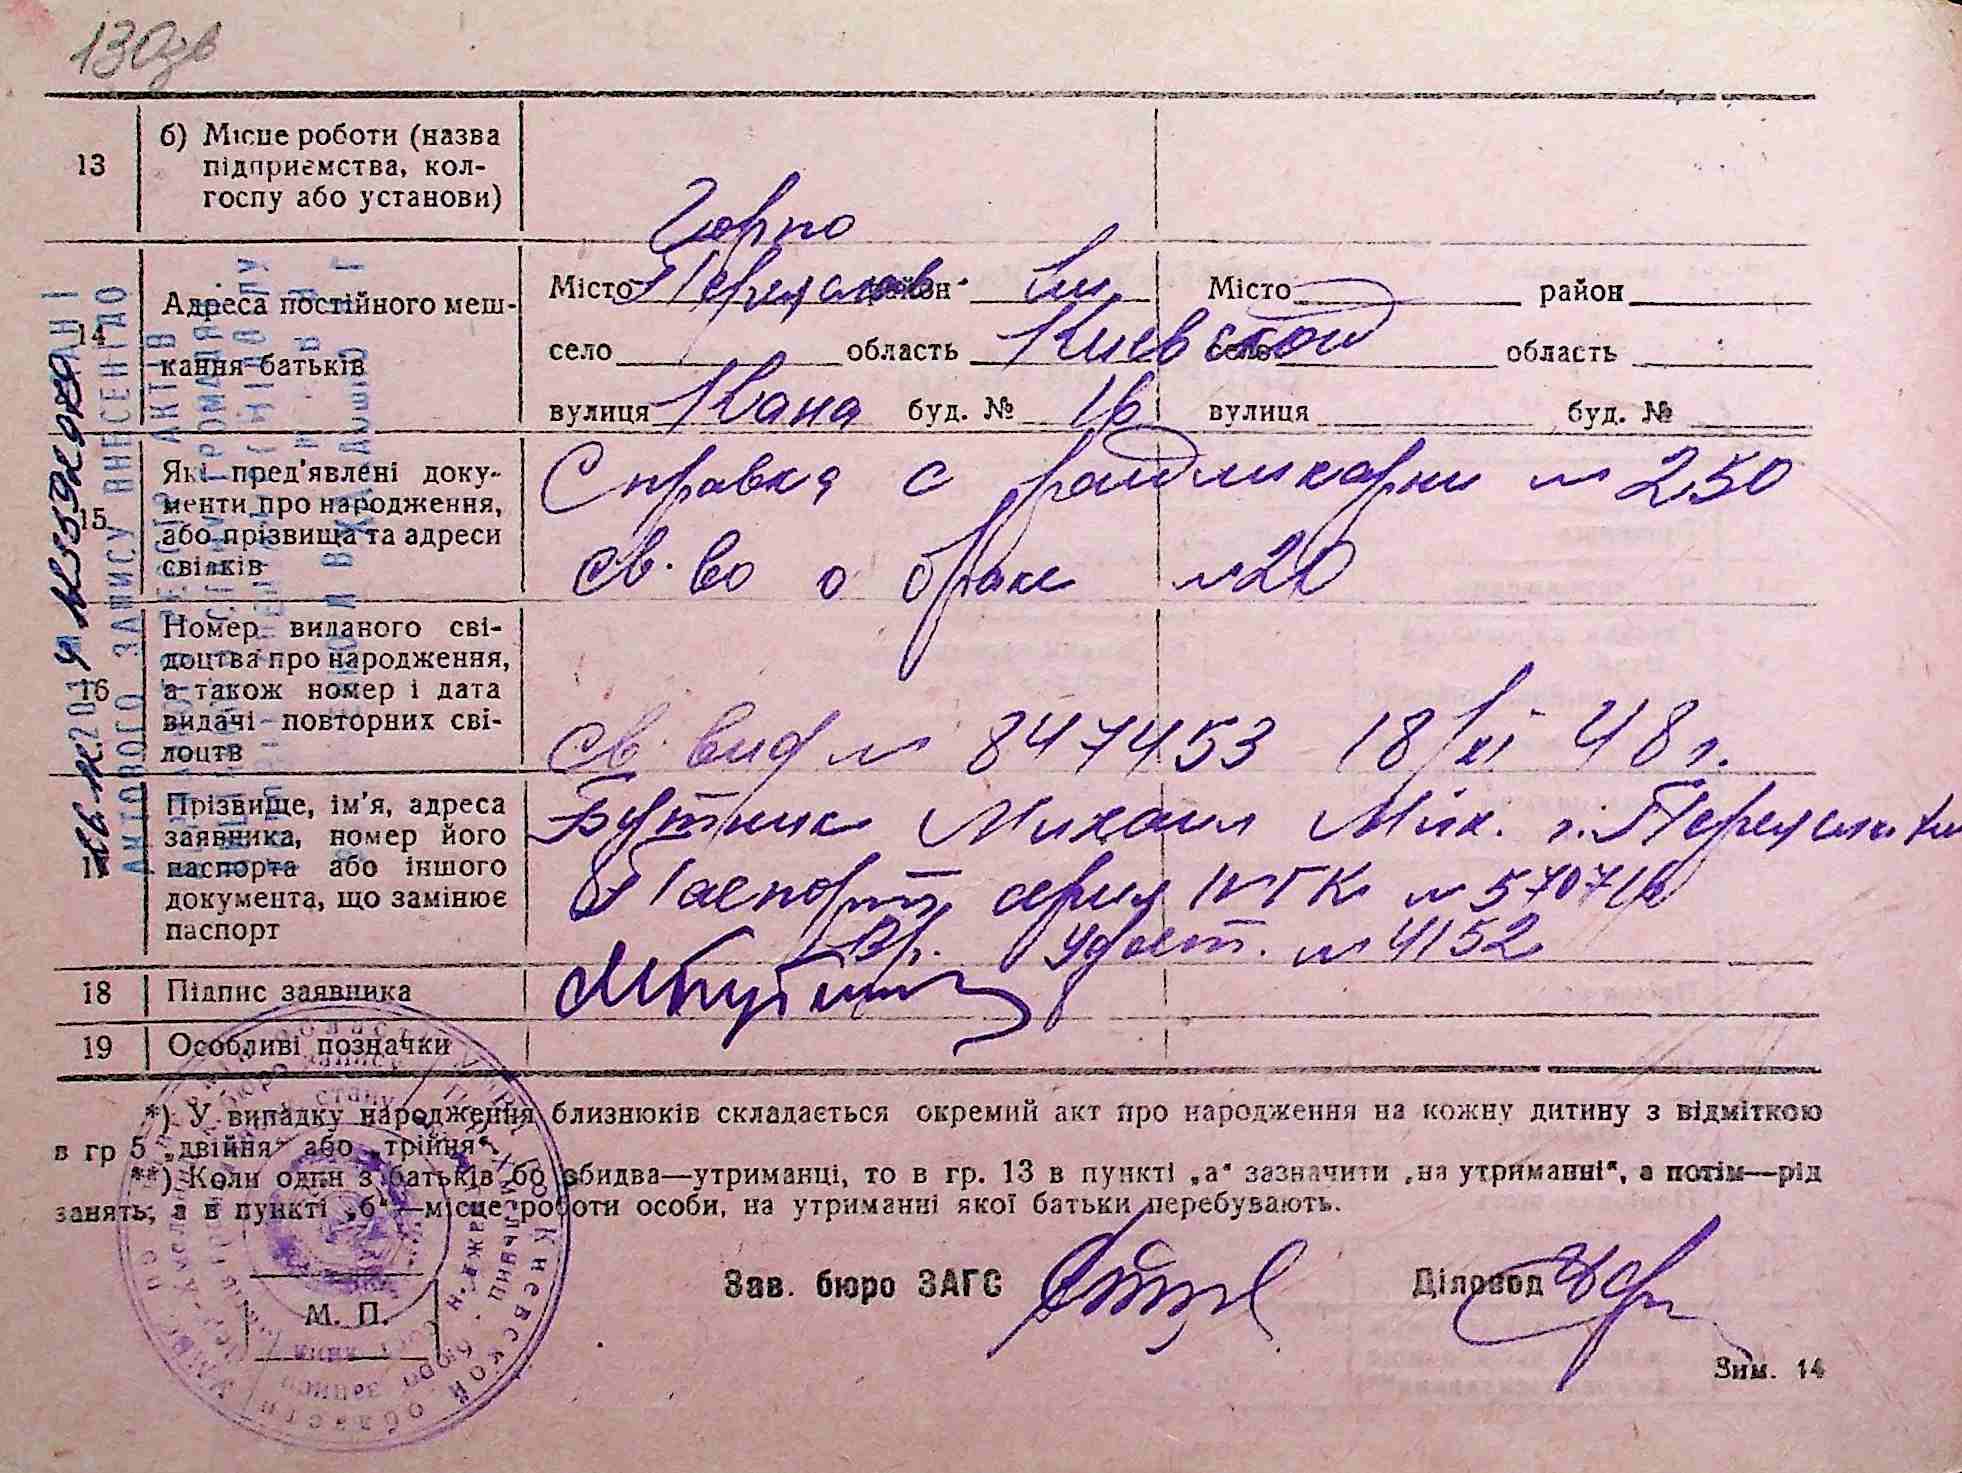 130зв
13 б) Місце роботи (назва
підприємства, кол-
госпу або установи)
Горпо
14 Адреса постійного меш-
кання батьків
Місто Переяслав район Хм Місто район
село область Киевской село область
вулиця Ивана буд. № 16 вулиця буд. №
15 Які пред'явлені доку-
менти про народження,
або прізвища та адреси
свідків
Справка с райдликарни № 250
св-во о браке №20
16 Номер виданого сві-
доцтва про народження,
а також номер і дата
видачі повторних сві-
доцтв
св. выд № 847453 18/XI 48 г.
17 Прізвище, ім'я, адреса
заявника, номер його
паспорта або іншого
документа, що замінює
паспорт
Бутник Михаил Мих. г. Переяслав Хм
Паспорт серия IV ГК № 570716
Вр. удост. № 4152
18 Підпис заявника
19 Особливі позначки
*) У випадку народження близнюків складається окремий акт про народження на кожну дитину з відміткою
в гр 5 „двійня" або „трійня".
**) Коли один з батьків бо обидва—утриманці, то в гр. 13 в пункті „а" зазначити „на утриманні", а потім—рід
занять, а в пункті „б"—місце роботи особи, на утриманні якої батьки перебувають.
Зав. бюро ЗАГС Діловод
М. П.
Зим. 14